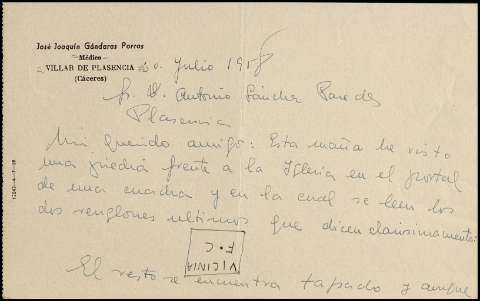 José Joaquín Gándaras Porras
Médico
VILLAR DE PLASENCIA
(Cáceres)
20. Julio 1958
Sr. D. Antonio Sánchez Paredes
Plasencia
Mi querido amigo: Esta maña he visto
una piedra frente a la Iglesia en el portal
de una cuadra y en la cual se leen los
dos renglones ultimos que dicen clarisimamente:
VICINIA
F·C
El resto se encuentra tapado y aunque